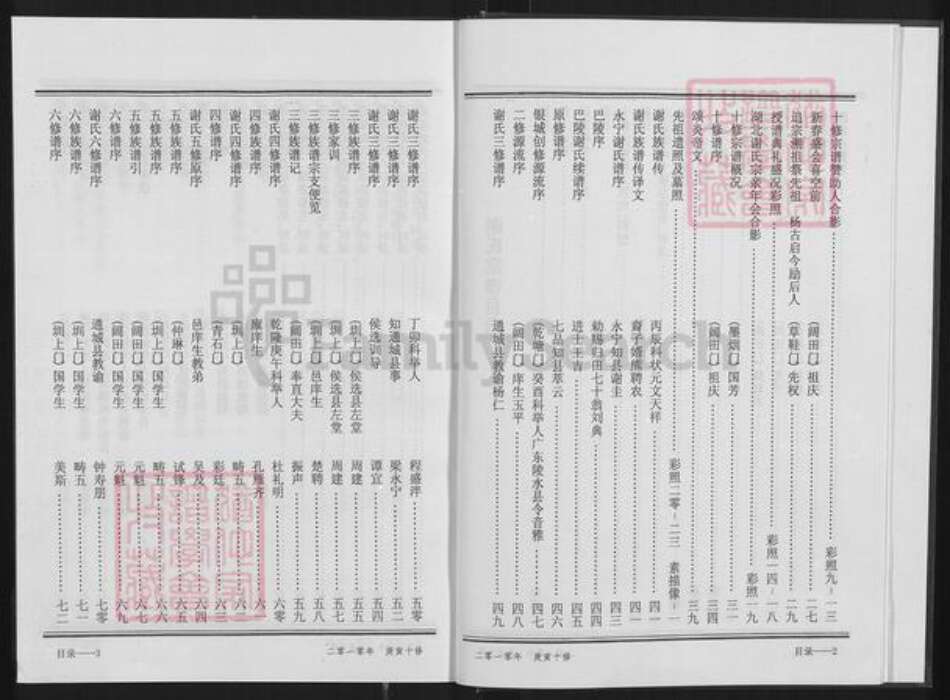 十修宗谱赞助人合影 彩照九－一三
新春盛会喜空前 (阔田□) 祖庆 二七
追宗溯祖祭先祖 杨古启今励后人 (草鞋□) 先权 二九
授谱典礼盛况彩照 彩照一四－一八
湖北谢氏宗亲年会合影 彩照一九
十修宗谱概况 国芳 三一
十修谱序 (阔田□) 祖庆 三四
颂炎帝文 三九
先祖遗照及墓照 彩照二零－二三 素描像－
谢氏族谱传 丙辰科状元文天祥 四一
谢氏族谱传译文 裔子婿熊聘农 四二
永宁谢氏谱序 永宁知县谢圭 四三
巴陵序 勅赐归田七十翁刘典 四四
巴陵谢氏续谱序 进士王吉 四五
原修谱序 七品知县萃云 四六
银城创修源流序 (乾塘□) 癸酉科举人广东陵水县令音雅 四七
二修源流序 (阔田□) 庠生玉平 四八
谢氏三修谱序 通城县教谕杨仁 四九
目录——2
二零一零年 庚寅十修
谢氏三修谱序 丁卯科举人 程盛泮 五零
谢氏三修谱序 知通城县事 梁永宁 五二
谢氏三修谱序 侯选训导 谭宜 五四
三修族谱序 (圳上□) 侯选县左堂 周建 五五
三修家训 (圳上□) 侯选县左堂 周建 五七
三修族谱宗支便览 (圳上□) 邑庠生 楚聘 五八
三修族谱记 (阔田□) 奉直大夫 振声 五九
谢氏四修谱序 乾隆庚午科举人 杜礼明 六零
四修族谱序 廪庠生 孔雁齐 六
谢氏四修谱序 (圳上□) 畴五 六
四修谱序 (青石□) 彩廷 六三
谢氏五修原序 邑庠生教弟 吴及 六四
五修族谱序 (仲琳□) 试锋 六五
五修族谱序 (圳上□) 国学生 畴五 六六
五修族谱引 (阔田□) 国学生 元魁 六七
六修谱序 (阔田□) 国学生 元魁 六九
谢氏六修谱序 通城县教谕 钟寿朋 七零
六修族谱序 (圳上□) 国学生 畴五 七一
六修谱序 (圳上□) 国学生 美斯 七二
二零一零年 庚寅十修
目录——3
FamilySearch